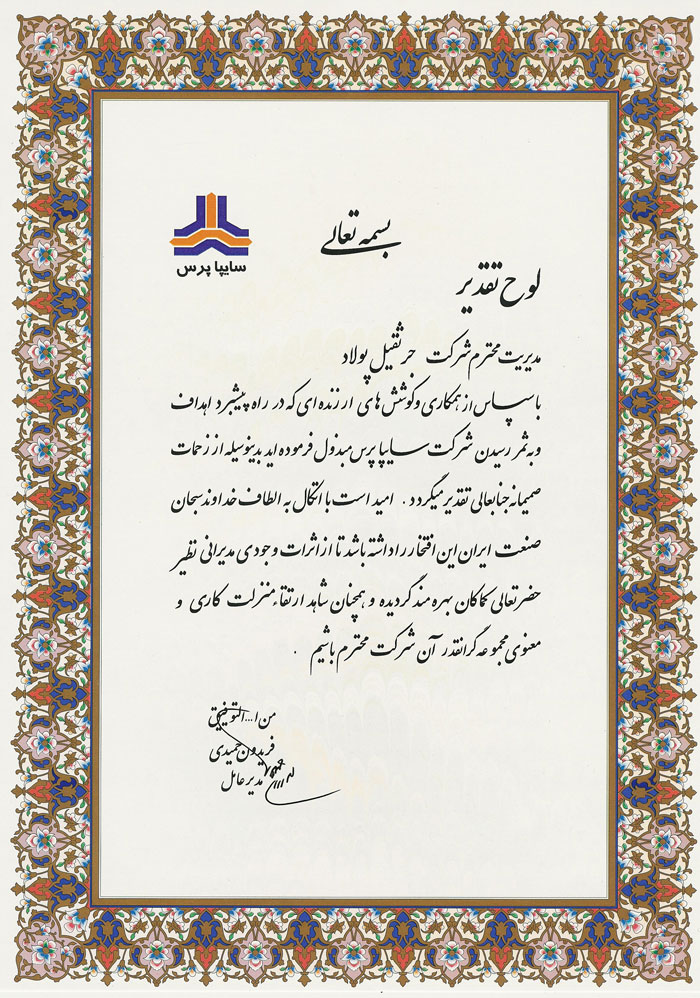 بسمه تعالی
سایپا پرس
لوح تقدیر
مدیریت محترم شرکت جرثقیل پولاد
با سپاس از همکاری و کوشش های ارزنده ای که در راه پیشبرد اهداف
و به ثمر رسیدن شرکت سایپا پرس مبذول فرموده اید بدینوسیله از زحمات
صمیمانه جنابعالی تقدیر میگردد . امید است با اتکال به الطاف خداوند سبحان
صنعت ایران این افتخار را داشته باشد تا از اثرات وجودی مدیرانی نظیر
حضرتعالی کماکان بهره مند گردیده و همچنان شاهد ارتقاء منزلت کاری و
معنوی مجموعه گرانقدر آن شرکت محترم باشیم .
من ا... التوفیق
فریدون حمیدی
مدیر عامل